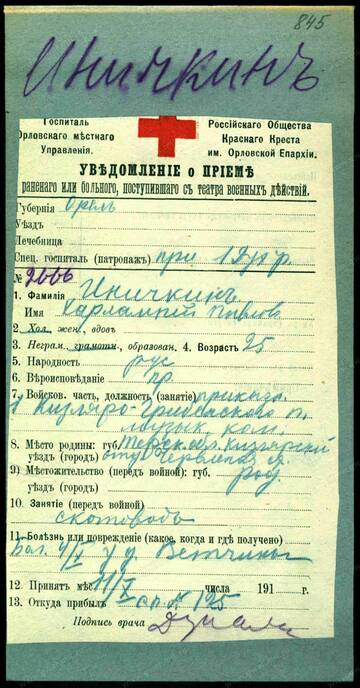 845
Иничкинъ
Госпиталь
Орловскаго мѣстнаго
Управленія.
Россійскаго Общества
Краснаго Креста
им. Орловской Епархіи.
УВѢДОМЛЕНІЕ о ПРІЕМѢ
раненаго или больного, поступившаго съ театра военныхъ дѣйствій.
Губернія Орелъ
Уѣздъ
Лечебница
Спец. госпиталь (патронажъ) при
№ 2666
1. Фамилія Иничкинъ
Имя Харлампій Павлов
2. Хол., жен., вдовъ
3. Неграм., грамотн., образован. 4. Возрастъ 25
5. Народность рус
6. Вѣроисповѣданіе пр.
7. Войсков. часть, должность (занятіе) приказн.
1 Кизляро-Гребенского п.
музык. ком.
8. Мѣсто родины: губ. Терская, Кизлярскій
уѣздъ (городъ) отд Червленая
9) Мѣстожительство (передъ войной): губ. род.
уѣздъ (городъ)
10. Занятіе (передъ войной)
скотоводъ
11. Болѣзнь или поврежденіе (какое, когда и гдѣ получено)
у д. Ветчины
12. Принятъ мѣс. числа 191 г.
13. Откуда прибылъ с.п. № 125
Подпись врача